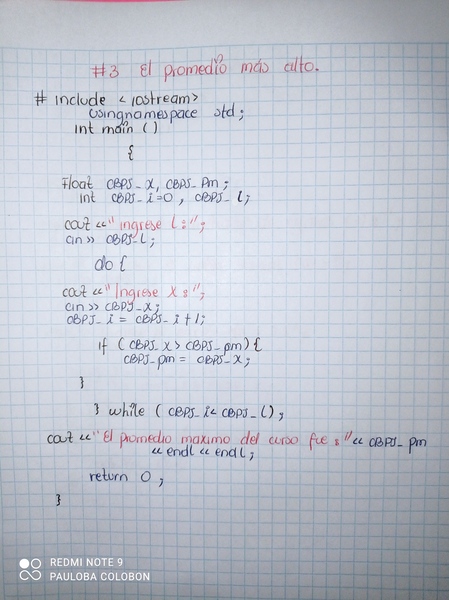 #3 El promedio más alto.
# include <iostream>
usingnamespace std;
int main ()
{
Float CBPS_x, CBPS_Pm;
int CBPS_i=0, CBPS_l;
cout <<"ingrese l:";
cin>> CBPS_l;
do {
cout <<"Ingrese x:";
cin>> CBPS_x;
CBPS_i = CBPS_i+1;
if (CBPS_x> CBPS_pm){
CBPS_pm= CBPS_x;
}
} while (CBPS_i< CBPS_l);
cout <<"El promedio maximo del curso fue:"<< CBPS_pm
<< endl << endl;
return 0;
}
REDMI NOTE 9
PAULOBA COLOBON